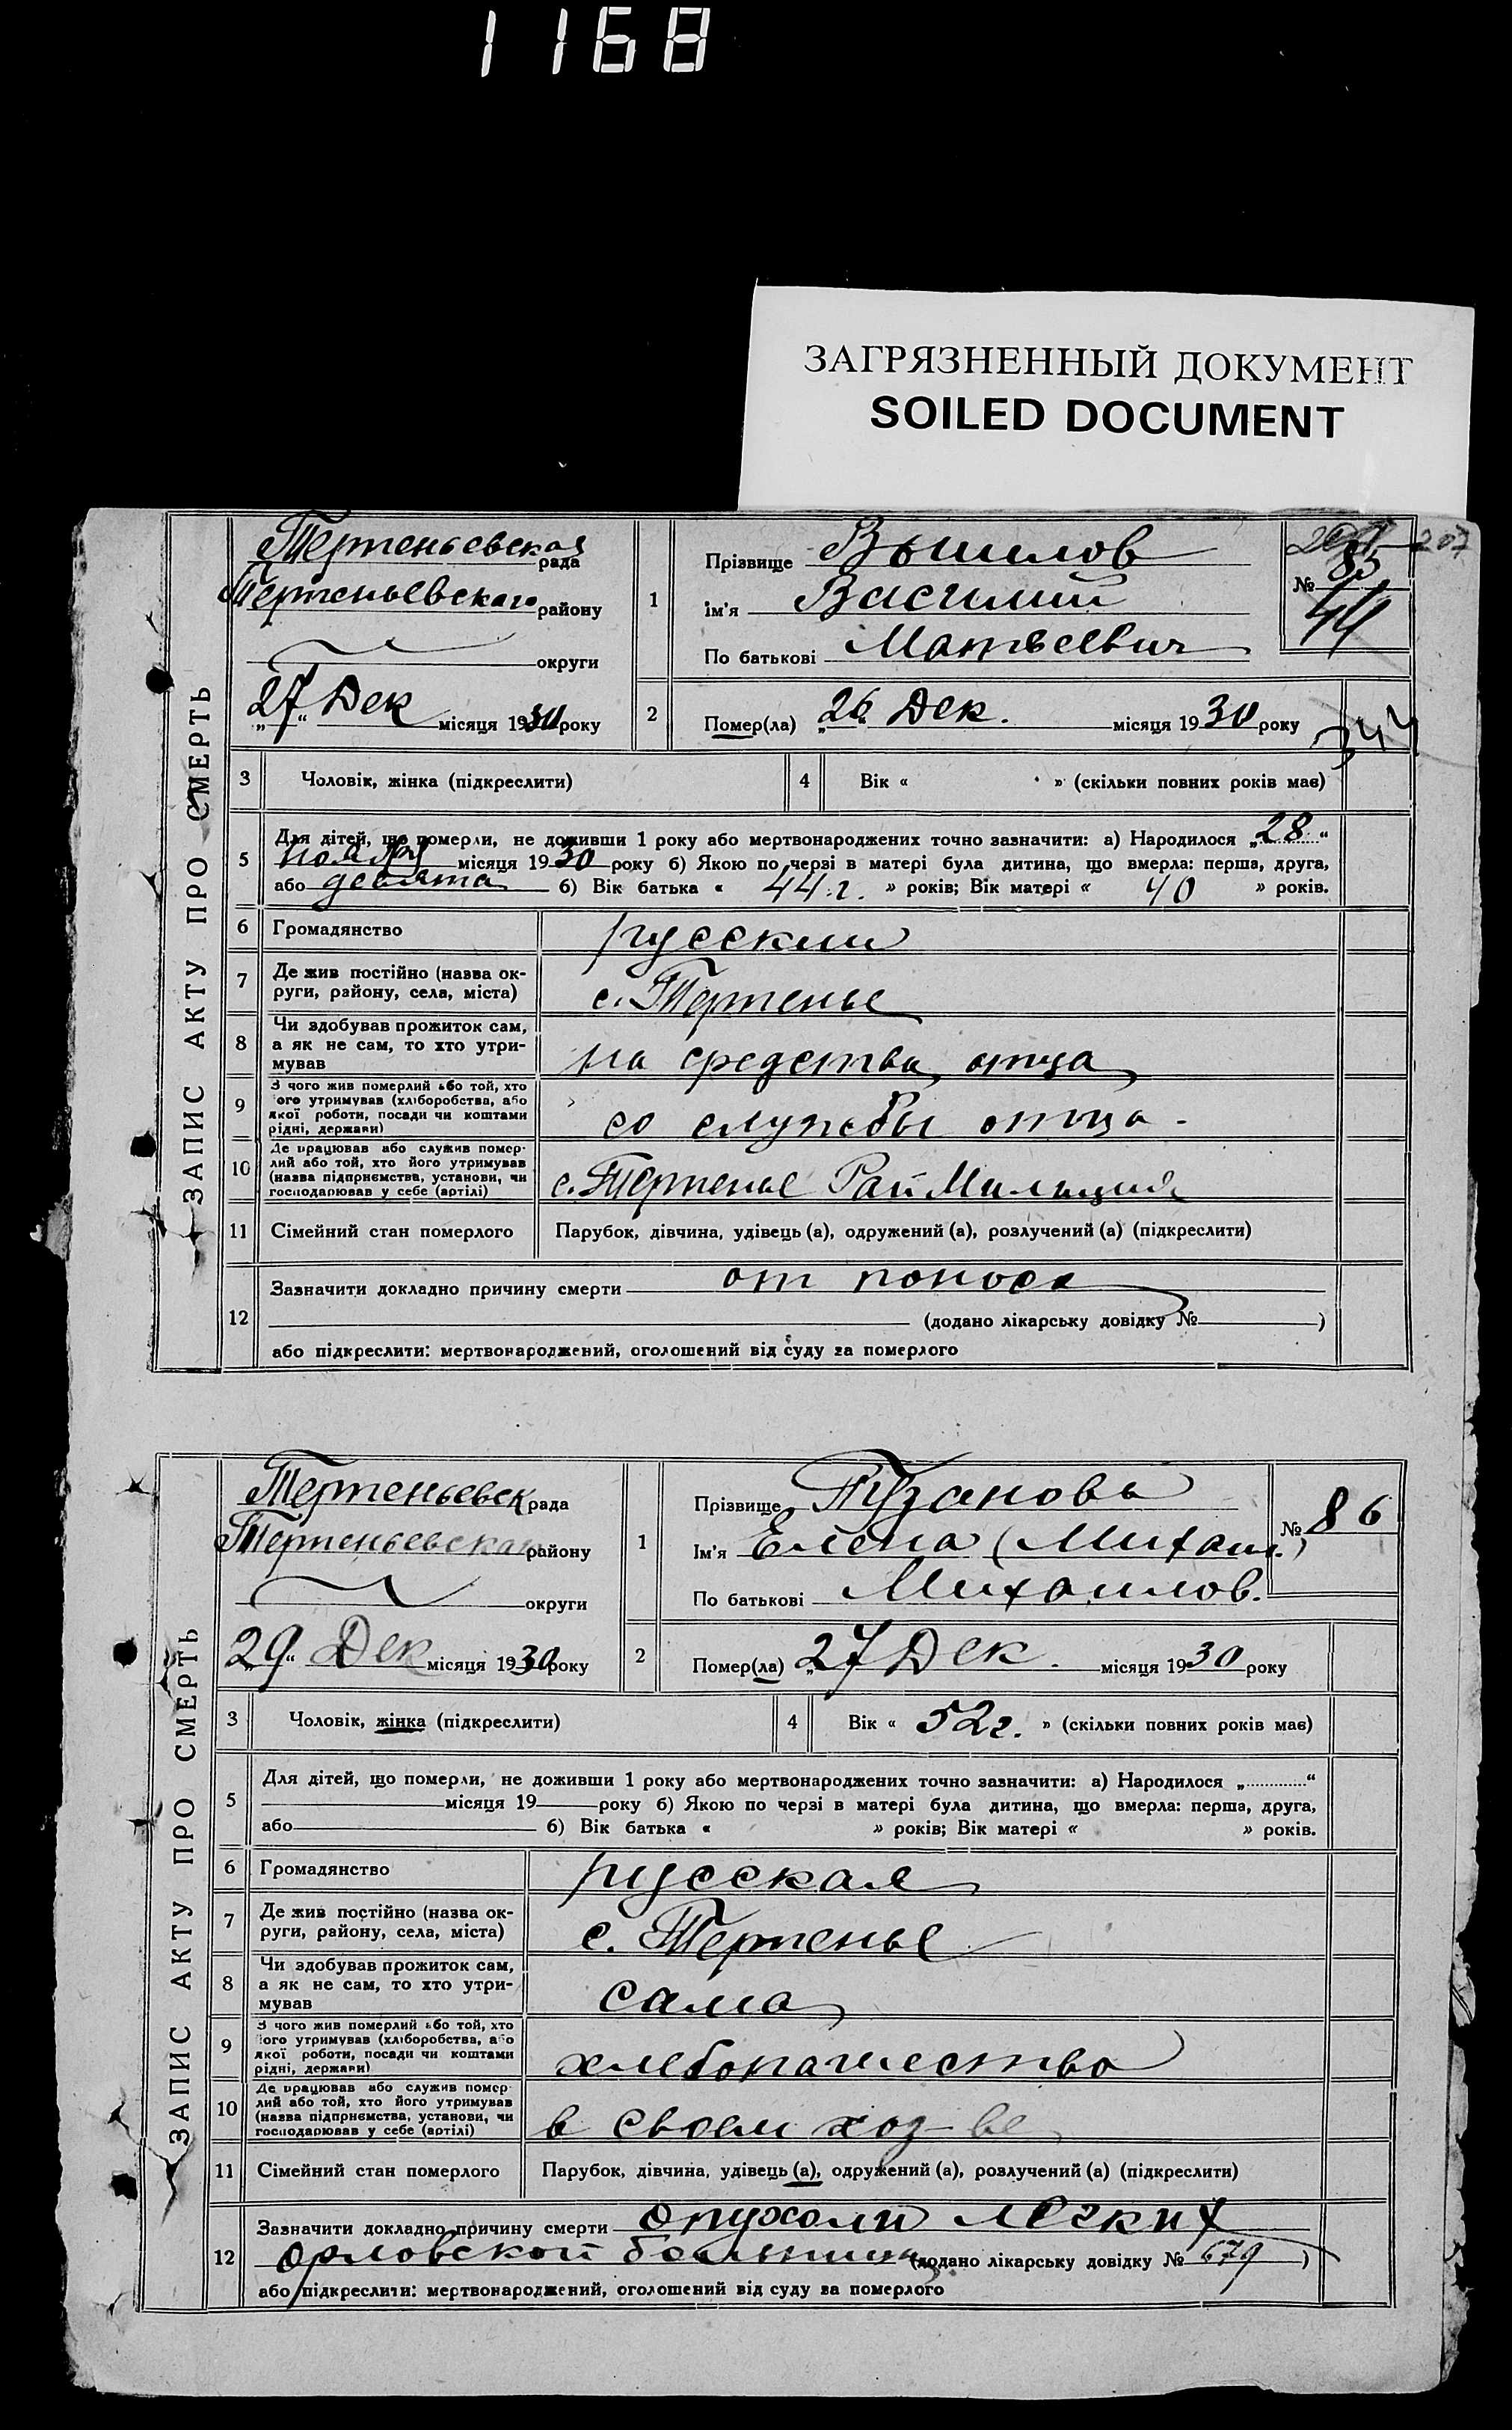 1168
ЗАГРЯЗНЕННЫЙ ДОКУМЕНТ
SOILED DOCUMENT
ЗАПИС АКТУ ПРО СМЕРТЬ
Терпеньевская рада
Терпеньевского району
округи
„27“ Дек місяця 1930 року
1
Прізвище Вышлов
Ім'я Василий
По батькові Матвеевич
207
№ 85
44
2
Помер(ла) „26“ Дек. місяця 1930 року
344
3 Чоловік, жінка (підкреслити)
4 Вік « » (скільки повних років має)
5 Для дітей, що померли, не доживши 1 року або мертвонароджених точно зазначити: а) Народилося „28“
ноября місяця 1930 року б) Якою по черзі в матері була дитина, що вмерла: перша, друга,
або девята б) Вік батька « 44 г. » років; Вік матері « 40 » років.
6 Громадянство русский
7 Де жив постійно (назва ок-
руги, району, села, міста)
с. Терпенье
8 Чи здобував прожиток сам,
а як не сам, то хто утри-
мував
на средства отца
9 З чого жив померлий або той, хто
його утримував (хліборобства, або
якої роботи, посади чи коштами
рідні, держави)
со службы отца
10 Де працював або служив помер-
лий або той, хто його утримував
(назва підприємства, установи, чи
господарював у себе (артілі)
с. Терпенье Рай Милиция
11 Сімейний стан померлого Парубок, дівчина, удівець (а), одружений (а), розлучений (а) (підкреслити)
12 Зазначити докладно причину смерти от поноса
(додано лікарську довідку № )
або підкреслити: мертвонароджений, оголошений від суду за померлого
ЗАПИС АКТУ ПРО СМЕРТЬ
Терпеньевск рада
Терпеньевская району
округи
„29“ Дек місяця 1930 року
1
Прізвище Пузанова
Ім'я Елена (Михаил.)
По батькові Михаилов.
№ 86
2
Помер(ла) „27 Дек. місяця 1930 року
3 Чоловік, жінка (підкреслити)
4 Вік « 52 г. » (скільки повних років має)
5 Для дітей, що померли, не доживши 1 року або мертвонароджених точно зазначити: а) Народилося „ “
місяця 19 року б) Якою по черзі в матері була дитина, що вмерла: перша, друга,
або б) Вік батька « » років; Вік матері « » років.
6 Громадянство русская
7 Де жив постійно (назва ок-
руги, району, села, міста)
с. Терпенье
8 Чи здобував прожиток сам,
а як не сам, то хто утри-
мував
сама
9 З чого жив померлий або той, хто
його утримував (хліборобства, або
якої роботи, посади чи коштами
рідні, держави)
хлебопашество
10 Де працював або служив помер-
лий або той, хто його утримував
(назва підприємства, установи, чи
господарював у себе (артілі)
в своем хоз-ве
11 Сімейний стан померлого Парубок, дівчина, удівець (а), одружений (а), розлучений (а) (підкреслити)
12 Зазначити докладно причину смерти опухоли легких
Орловской больницы (додано лікарську довідку № 679 )
або підкреслити: мертвонароджений, оголошений від суду за померлого